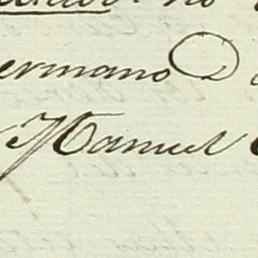 no
ermano D
Manuel